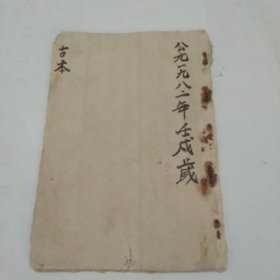 公元一九八二年壬戌歲
古本